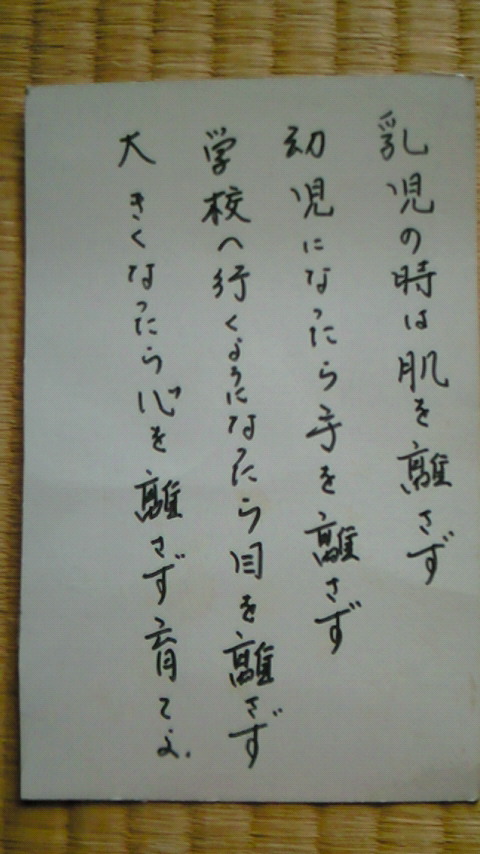 乳児の時は肌を離さず
幼児になったら手を離さず
学校へ行くようになたら目を離さず
大きくなったら心を離さず育てよ.